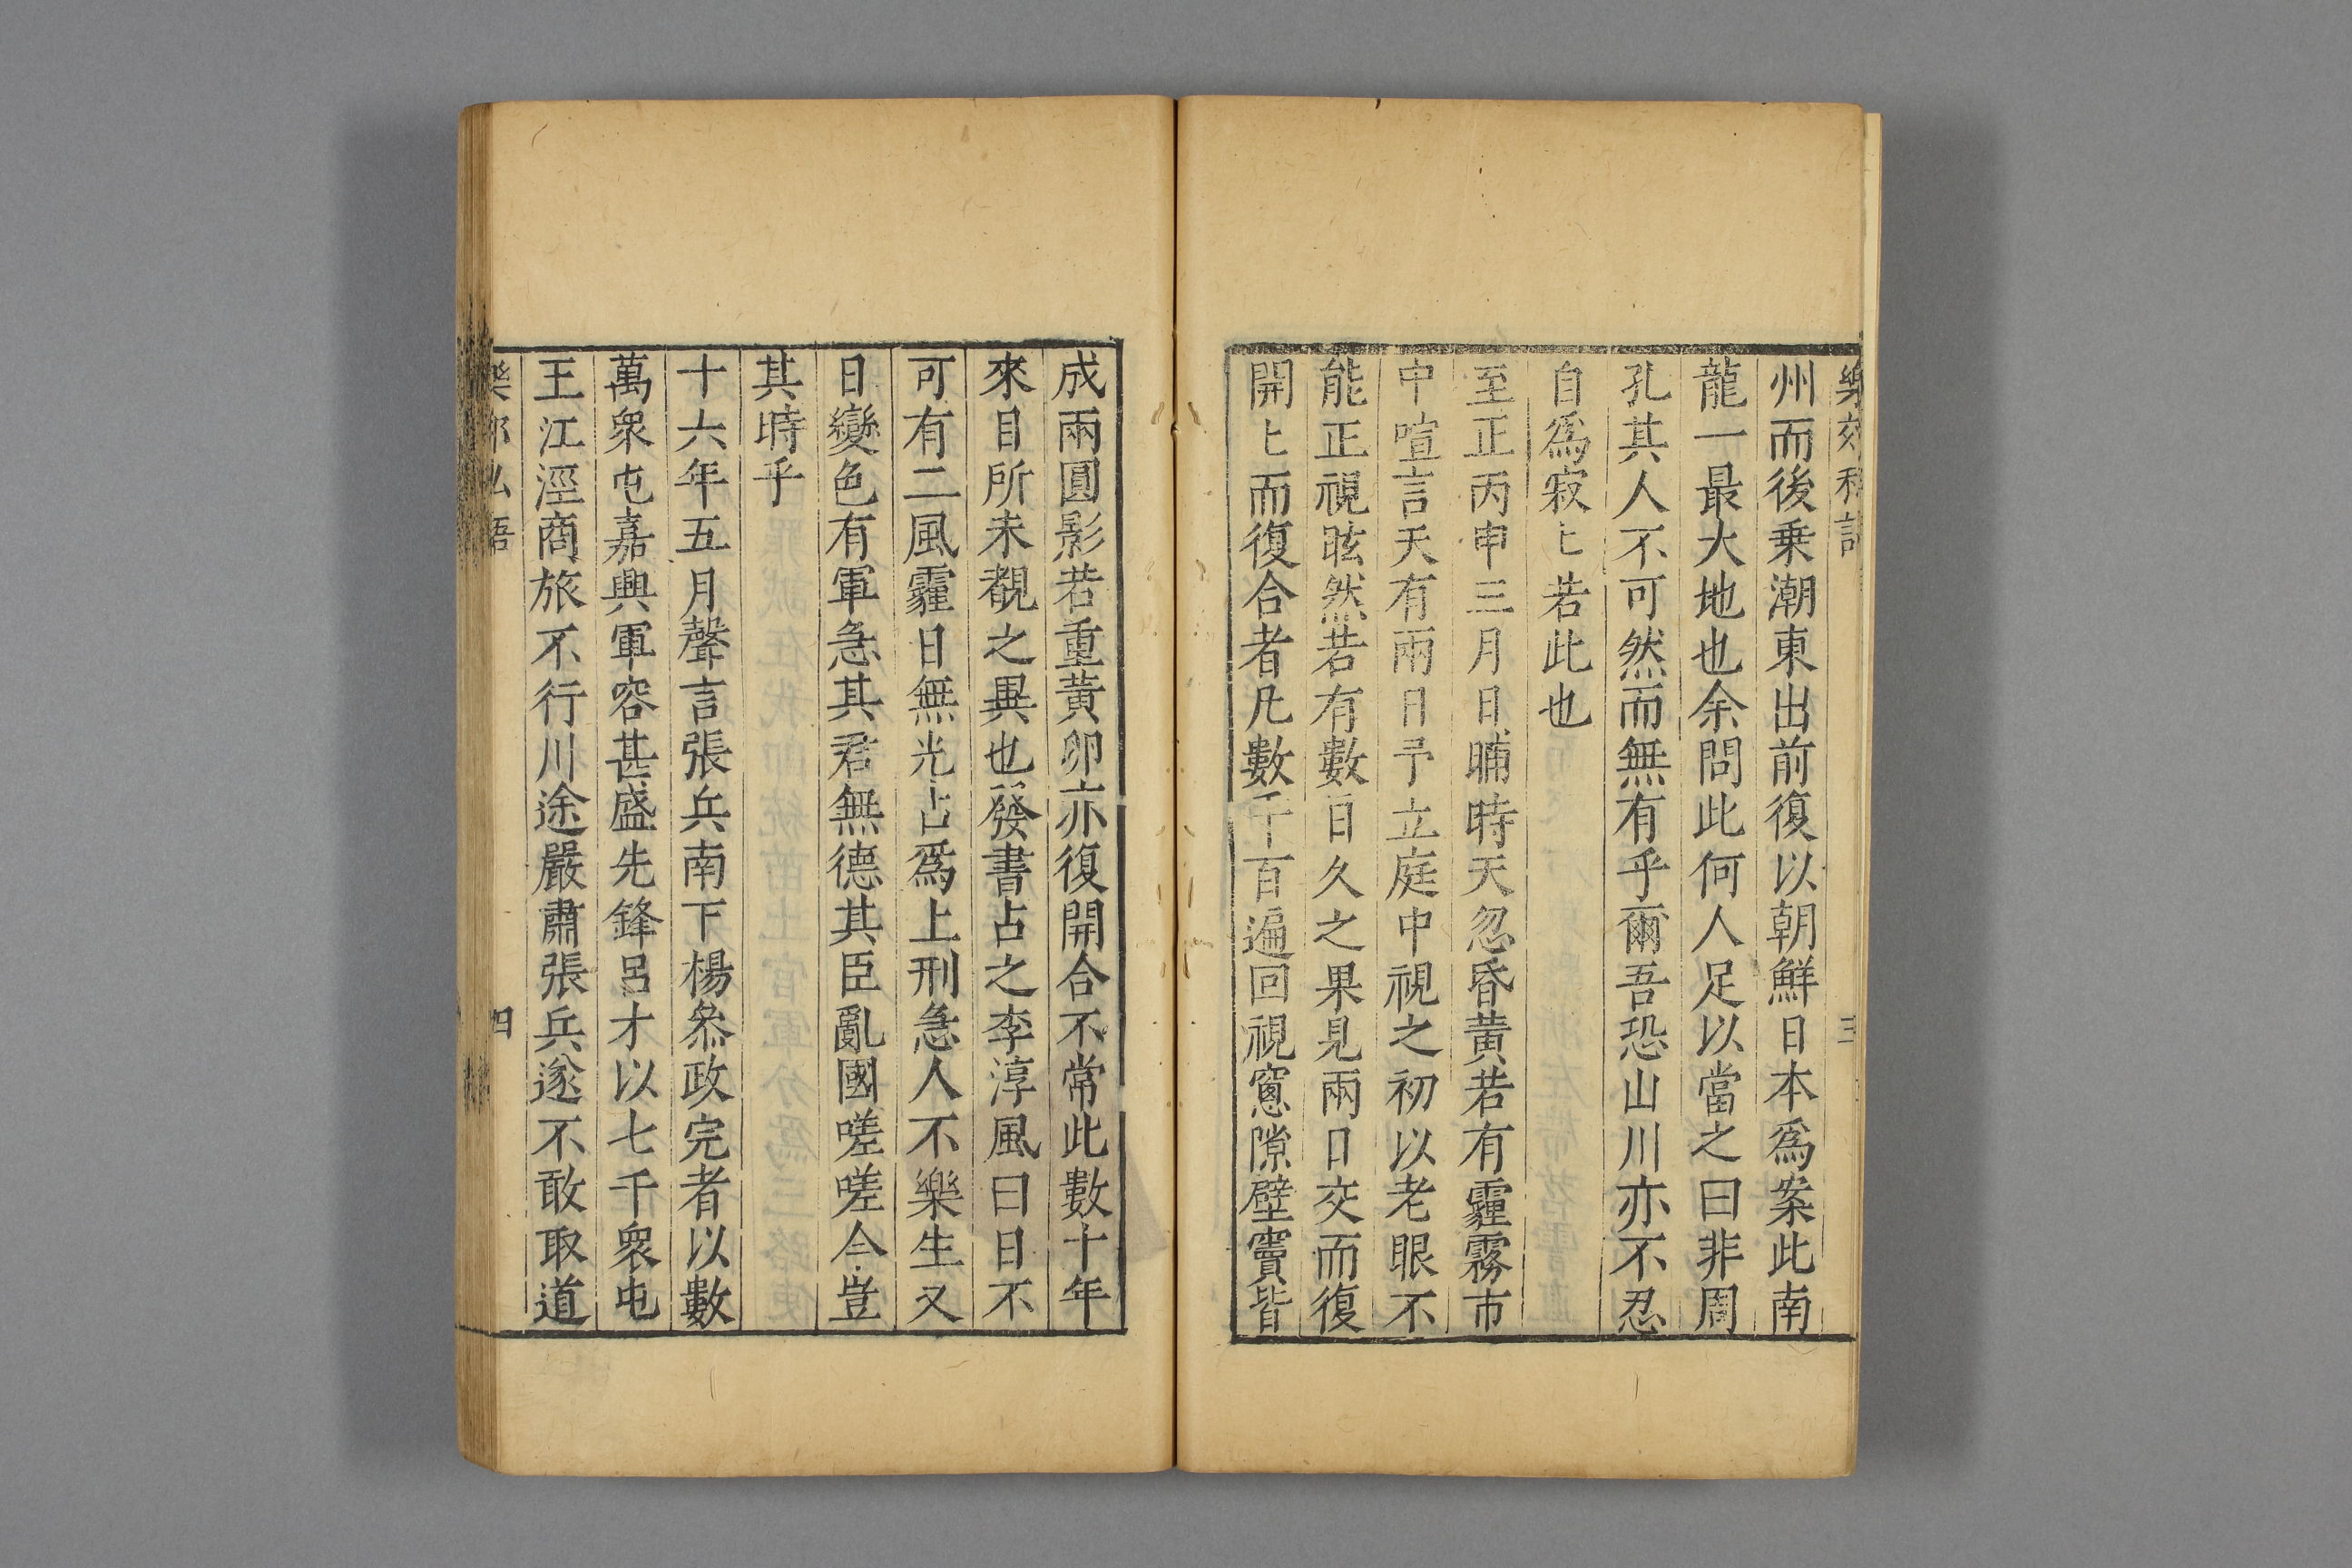 州而後乗潮東出前復以朝鮮日本爲案此南
龍一最大地也余問此何人足以當之曰非周
孔其人不可然而無有乎爾吾恐山川亦不忍
自爲寂〻若此也
至正丙申三月日晡時天忽昏黄若有霾霧市
中喧言天有兩日予立庭中視之初以老眼不
能正視眩然若有數日久之果見兩日交而復
開〻而復合者凡數千百遍回視窻隙壁竇皆
成兩圓影若重黄卵亦復開合不常此數十年
來目所未覩之異也發書占之李淳風曰日不
可有二風霾日無光占爲上刑急人不樂生又
日變色有軍急其君無德其臣亂國嗟嗟今豈
其時乎
十六年五月聲言張兵南下楊叅政完者以數
萬衆屯嘉興軍容甚盛先鋒呂才以七千衆屯
王江涇商旅不行川途嚴肅張兵遂不敢取道
四